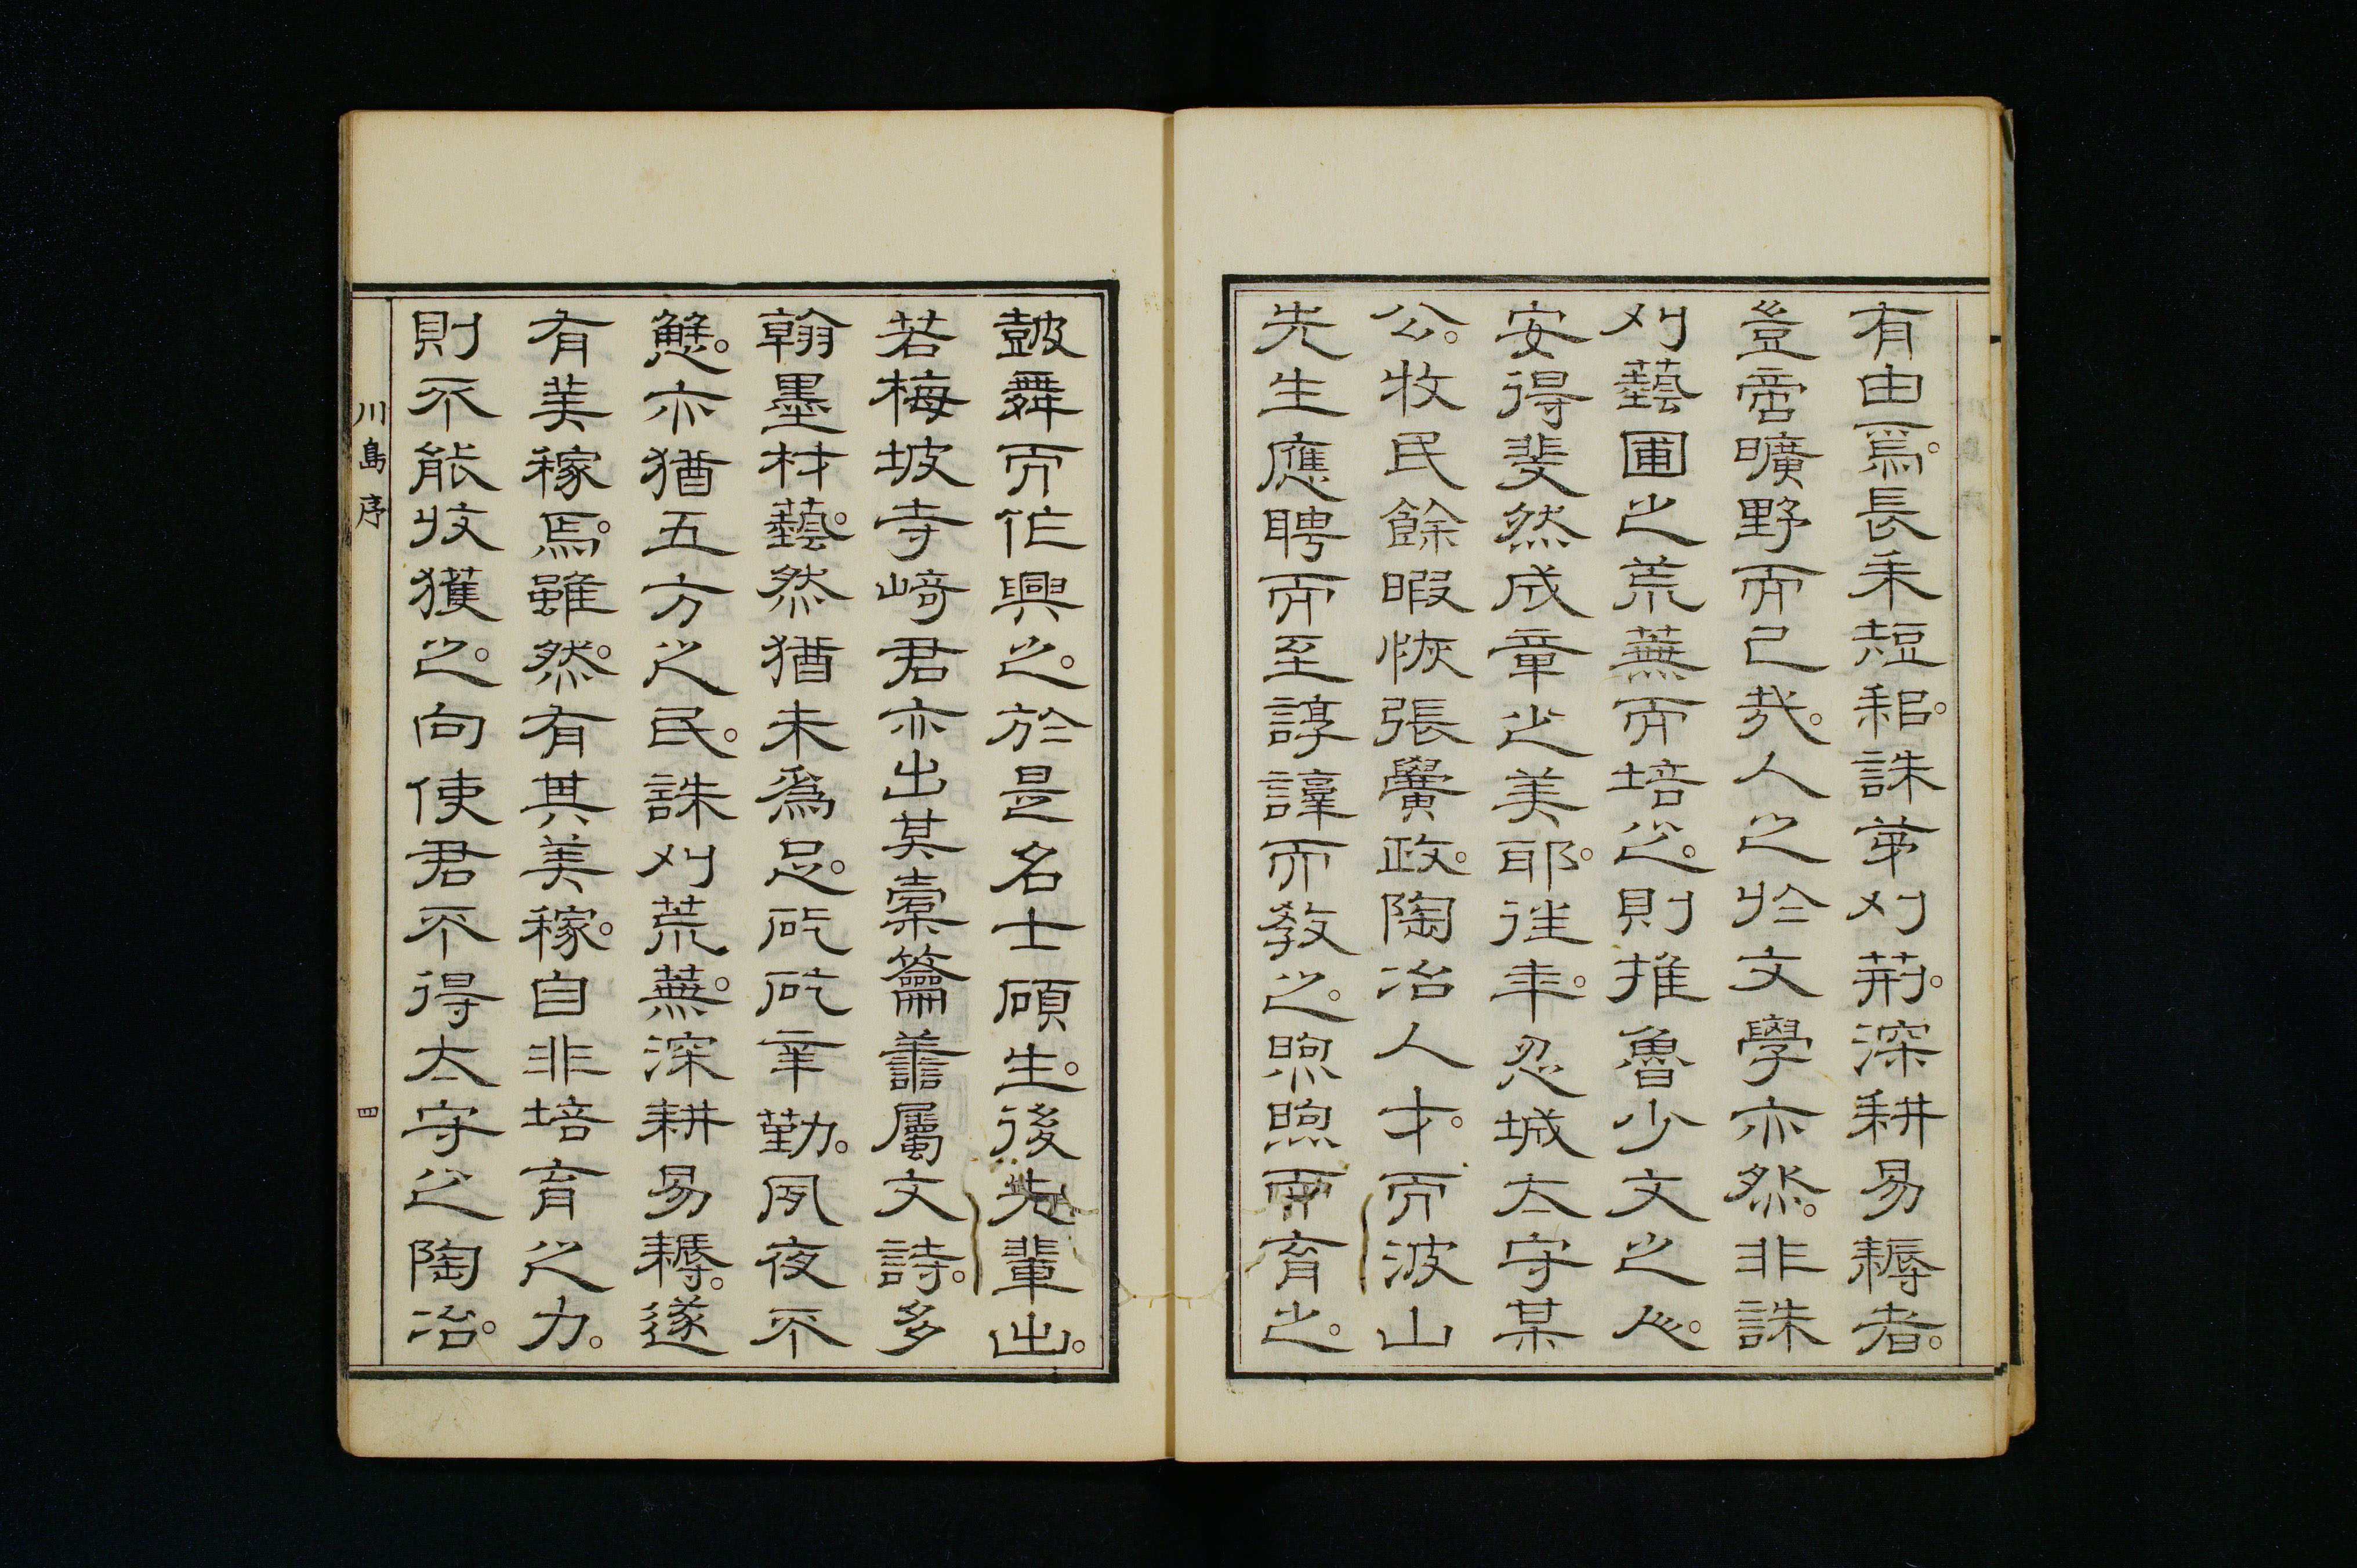 有由焉。長耒短耜。誅茅刈荊。深耕易耨者。
豈啻曠野而已哉。人之於文學亦然。非誅
刈藝圃之荒蕪而培之。則椎魯少文之人。
安得斐然成章之美耶。往年。忍城太守某
公。牧民餘暇恢張黌政。陶冶人才。而波山
先生應聘而至諄諄而教之。煦煦而育之。
鼓舞而作興之。於是名士碩生。後先輩出。
若梅坡寺崎君亦出其橐籥善屬文詩。多
翰墨材藝。然猶未爲足。矻矻辛勤。夙夜不
懈。亦猶五方之民。誅刈荒蕪。深耕易耨。遂
有美稼焉。雖然。有其美稼。自非培育之力。
則不能收獲之。向使君不得太守之陶冶。
川島序
四